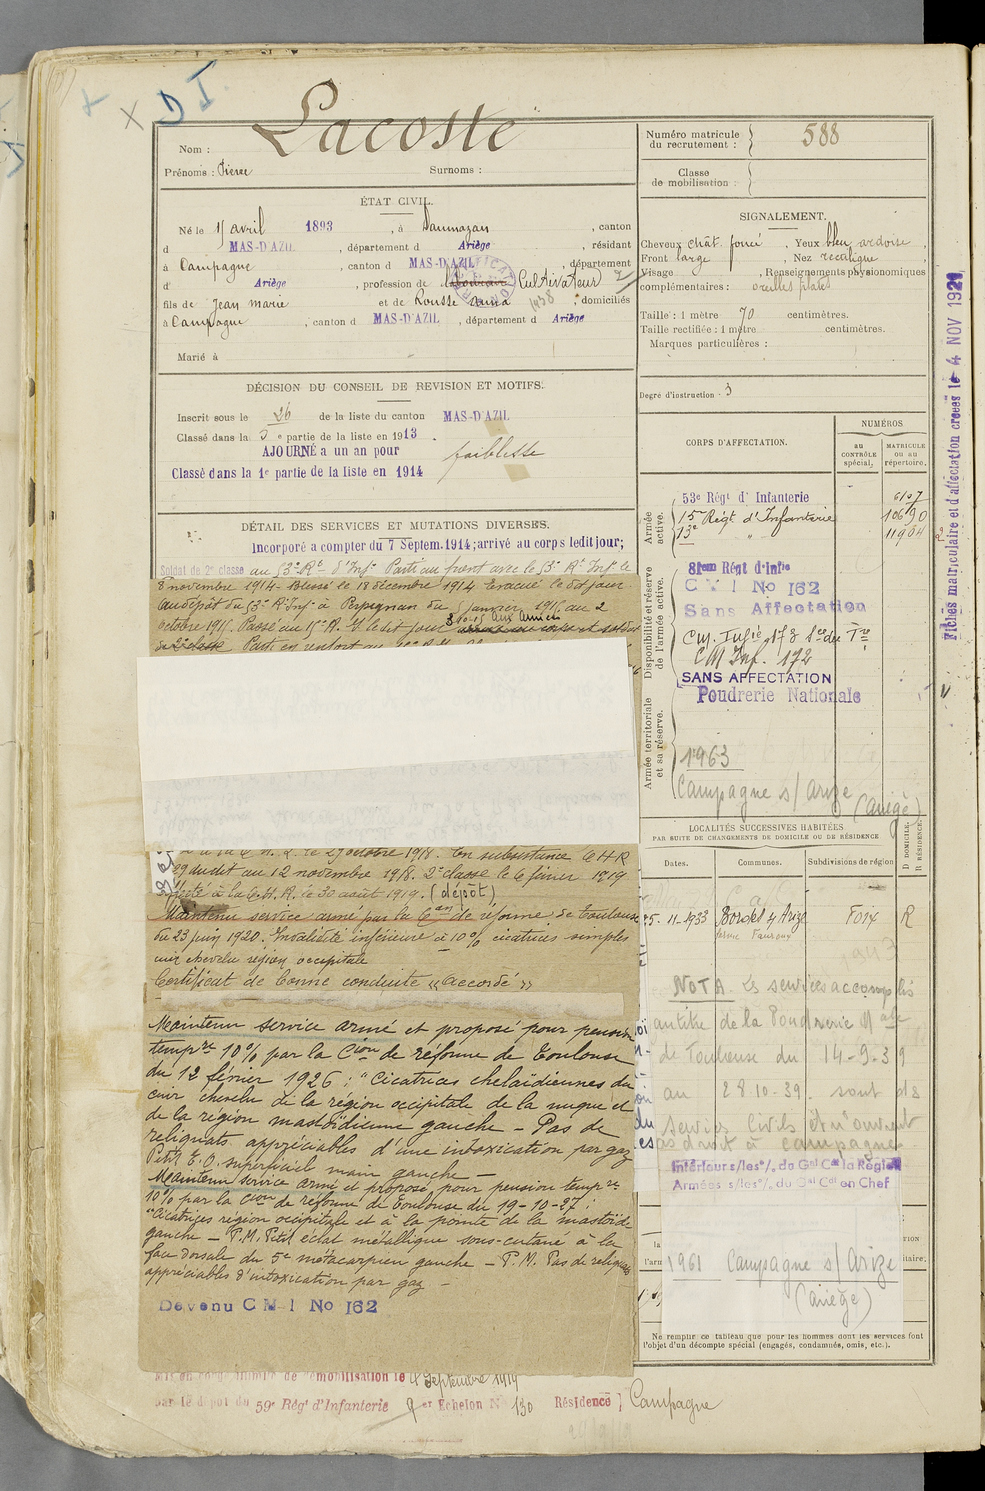 Nom : Lacoste
Prénoms : Pierre Surnoms :
ÉTAT CIVIL.
Né le 15 avril 1893, à Daumazan, canton
d MAS-D'AZIL, département d Ariège, résidant
à Campagne, canton d MAS-D'AZIL, département
d' Ariège, profession de Cultivateur
fils de Jean marie et de Rousse anna, domiciliés
à Campagne, canton d MAS-D'AZIL, département d Ariège
Marié à
DÉCISION DU CONSEIL DE REVISION ET MOTIFS.
Inscrit sous le n° 26 de la liste du canton MAS-D'AZIL
Classé dans la 5 e partie de la liste en 1913.
AJOURNÉ a un an pour faiblesse
Classé dans la 1e partie de la liste en 1914
DÉTAIL DES SERVICES ET MUTATIONS DIVERSES.
Incorporé a compter du 7 Septem. 1914; arrivé au corps ledit jour;
Soldat de 2e classe au 53e Rt d'Infie Parti au front avec le 53e Rt Inf. le
8 novembre 1914. Blessé le 18 décembre 1914 Evacué le dit jour
au dépôt du 53e R. Inf. à Perpignan du 5 janvier 1915 au 2
octobre 1915. Passé au 15e R. I. le dit jour aux armées
de 2e classe Parti en renfort au
le 29 octobre 1918. En subsistance le H R
29 du dit au 12 novembre 1918. 2e classe le 6 février 1919
à la C. H. R. le 30 août 1919. (dépôt)
Maintenu service armé par la Con de réforme de Toulouse
du 23 juin 1920. Invalidité inférieure à 10% cicatrices simples
cuir chevelu région occipitale
Certificat de bonne conduite "accordé"
Maintenu service armé et proposé pour pension
tempre 10% par la Cion de réforme de Toulouse
du 12 février 1926 : "Cicatrices cheloïdiennes du
cuir chevelu de la région occipitale de la nuque et
de la région mastoïdienne gauche - Pas de
reliquats appréciables d'une intoxication par gaz
Petit E.O. superficiel main gauche -
Maintenu service armé et proposé pour pension tempre
10% par la Cion de réforme de Toulouse du 19-10-27 :
"Cicatrices région occipitale et à la pointe de la mastoïde
gauche - P.M. Petit éclat métallique sous-cutané à la
face dorsale du 5e métacarpien gauche - P.M. Pas de reliquats
appréciables d'intoxication par gaz -
Devenu C M I No 162
Mis en congé illimité de démobilisation le 4 Septembre 1919
par le dépôt du 59e Rég' d'Infanterie 9 er Echelon N° 130 Résidence } Campagne
Numéro matricule du recrutement : } 588
Classe de mobilisation : }
SIGNALEMENT.
Cheveux chât. foncé, Yeux bleu ardoise,
Front large, Nez rectiligne,
Visage, Renseignements physionomiques
complémentaires : oreilles plates
Taille : 1 mètre 70 centimètres.
Taille rectifiée : 1 mètre centimètres.
Marques particulières :
Degré d'instruction : 3
CORPS D'AFFECTATION.
NUMÉROS
au CONTRÔLE spécial.
MATRICULE ou au répertoire.
Armée active.
53e Régt d' Infanterie 6107
15e Régt d'Infanterie 10690
13e " 11904
Disponibilité et réserve de l'armée active.
81eme Régt d'Infie
C M I No 162
Sans Affectation
C M Inf. 172
SANS AFFECTATION
Poudrerie Nationale
Armée territoriale et sa réserve.
1963
Campagne s/ Arize (Ariège)
LOCALITÉS SUCCESSIVES HABITÉES
PAR SUITE DE CHANGEMENTS DE DOMICILE OU DE RÉSIDENCE
Dates. Communes. Subdivisions de région D DOMICILE. R RÉSIDENCE.
25.11.1933 Bordes s/ Arize Foix R
NOTA. Les services accomplis
au titre de la Poudrerie Nale
de Toulouse du 14-9-39
au 28-10-39 sont des
services Civils et n'ouvrent
Intérieur s/les o/. du Gal Ct la Région
Armées s/les o/. du Gal Ct en Chef
1961 Campagne s/ Arize
(Ariège)
Ne remplir ce tableau que pour les hommes dont les services font
l'objet d'un décompte spécial (engagés, condamnés, omis, etc.).
Fiches matriculaire et d'affectation créées le 4 NOV 192